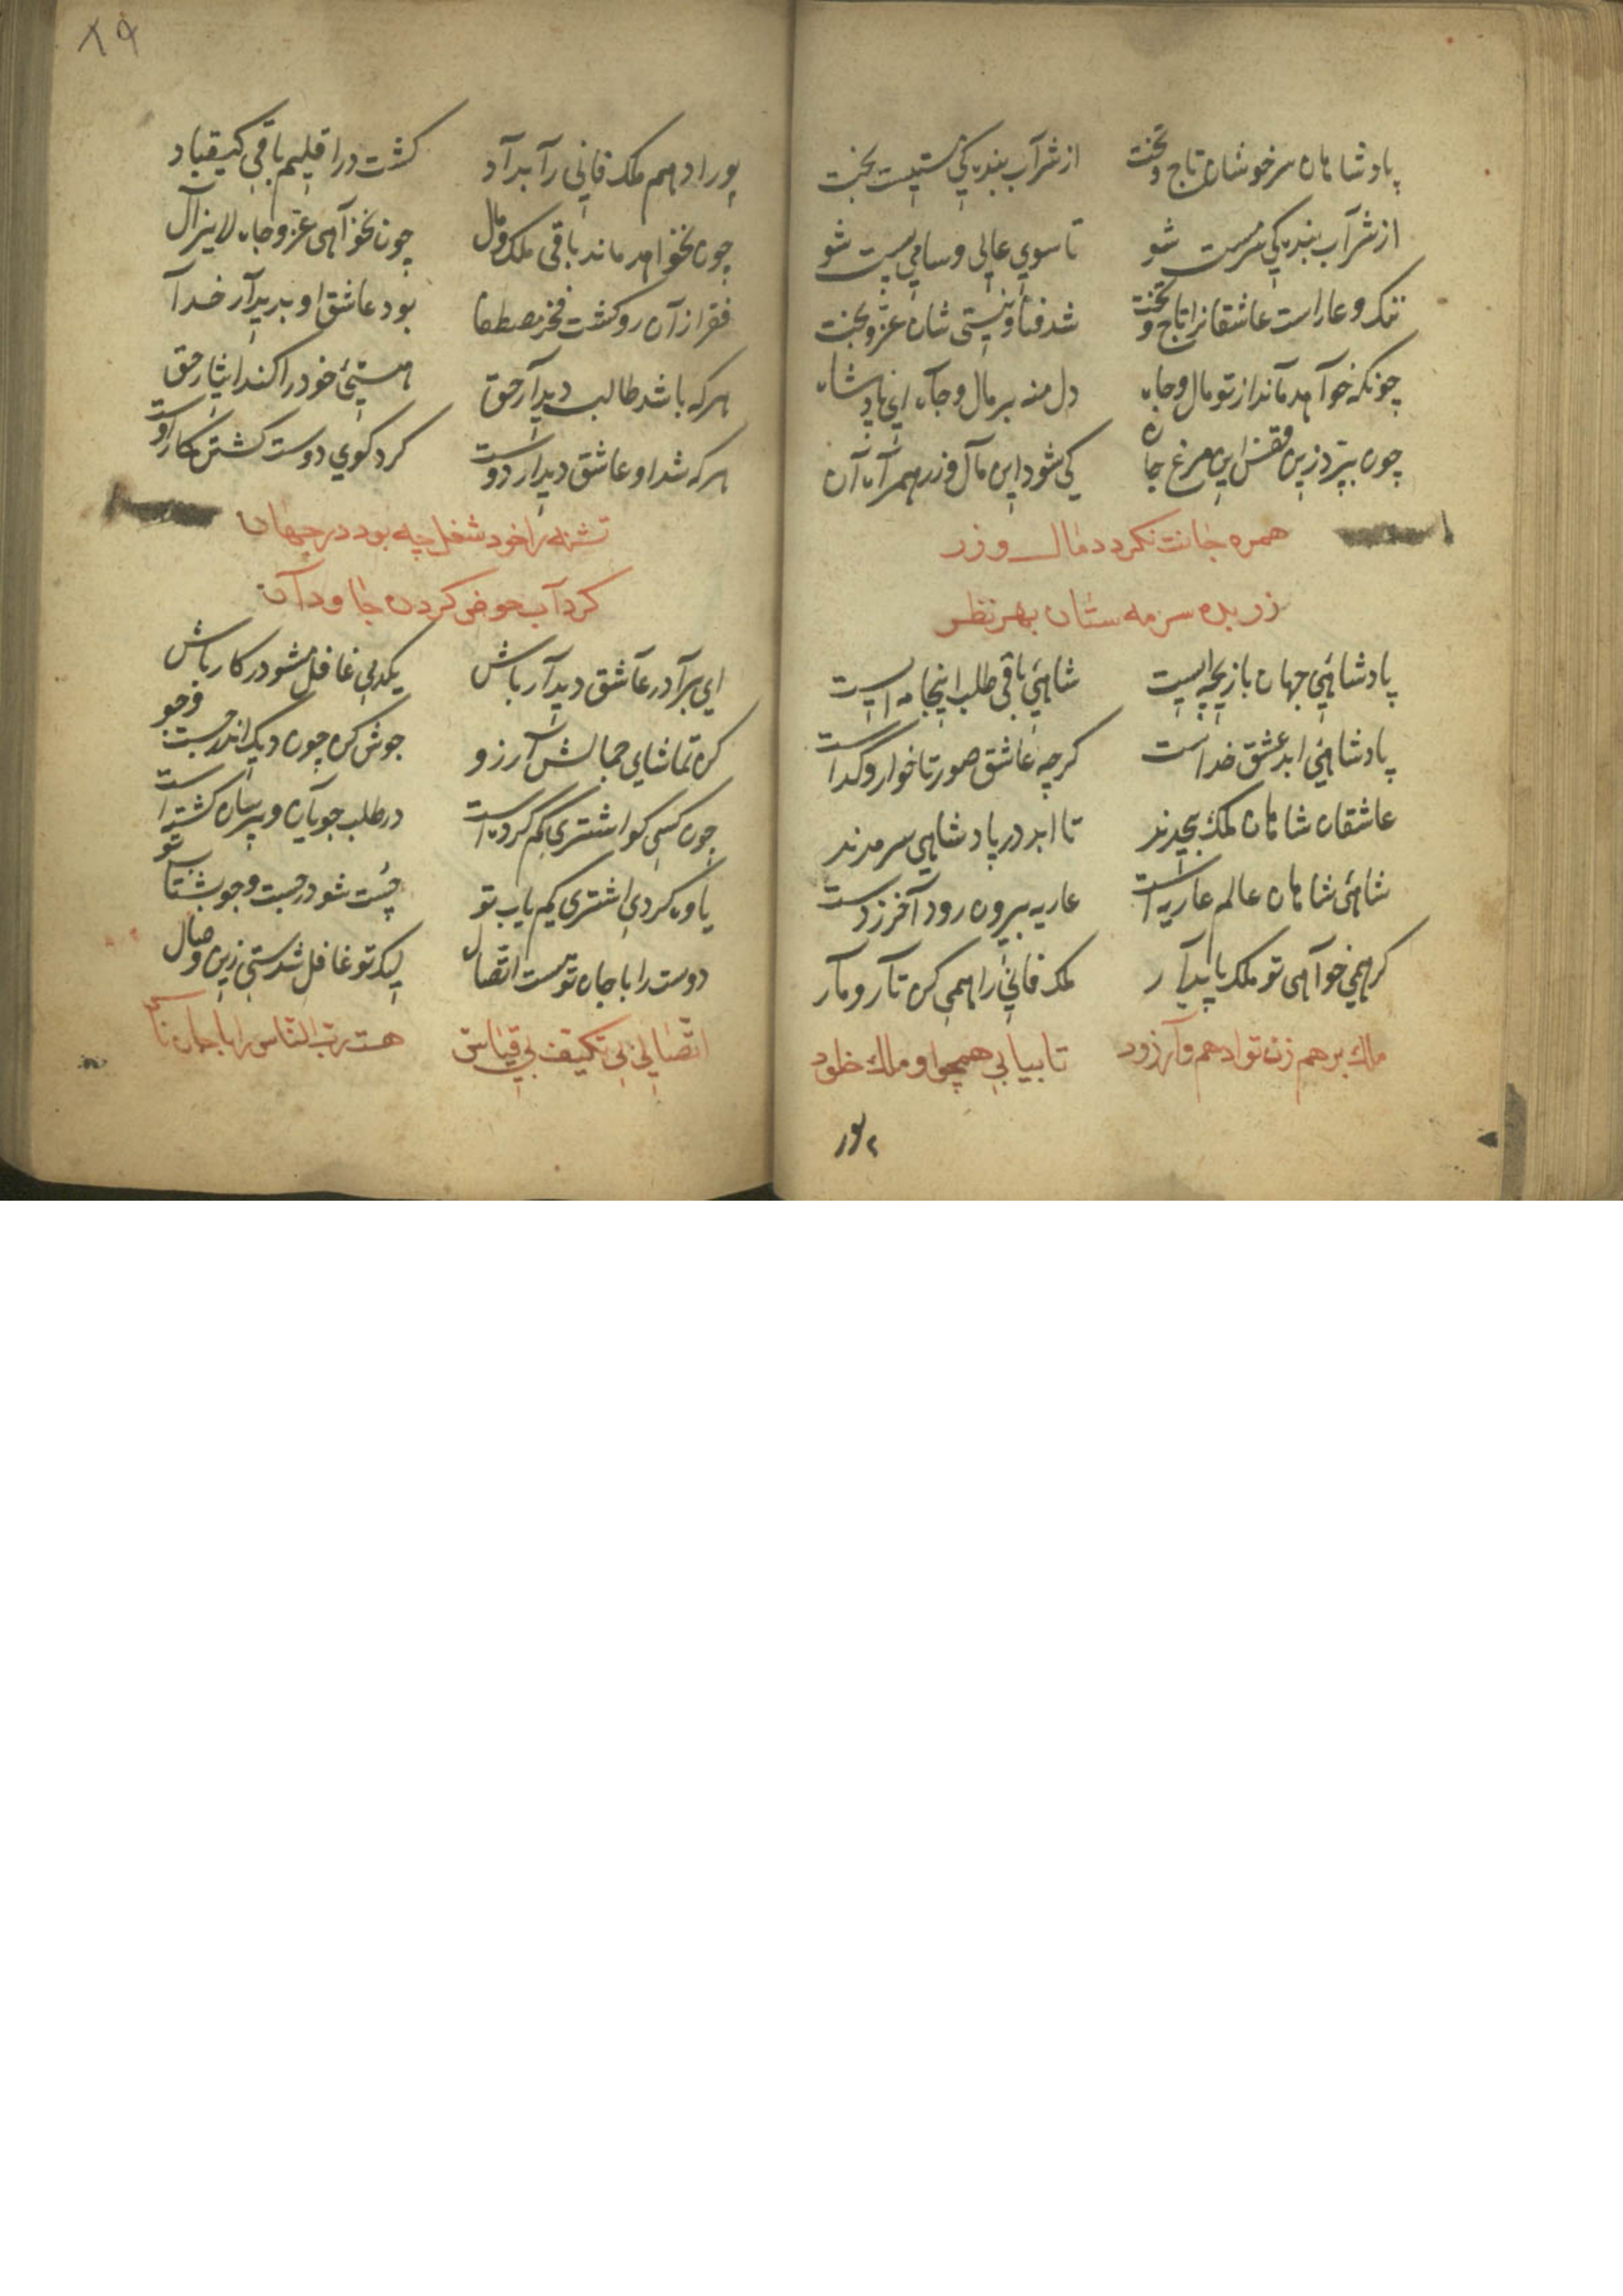 پادشاهان سرخوشان تاج وتخت از شرآب بندیکی نیست بخت
از شرآب بندیکی سرمست شو تا سوی عالی وسامی پست شو
ننک وعاراست عاشقانرا تاج وتخت شد فنا ونیستی شان عزّ وبخت
چونکه خوآهد مآند از تو مال وجاه دل منه بر مال وجآه ای پادشاه
چون بپرّد زین قفس این مرغ جان کی شود این مآل وزر همرآه آن
همره جانت نکردد مال وزر
زر بده سرمه ستان بهر نظر
پادشاهئ جهان بازیچه ایست شاهئ باقی طلب اینجا مه ایست
پادشاهئ ابد عشق خداست کرچه عاشق صورتا خوار وگداست
عاشقان شاهان ملک بیحدند تا ابد در پادشاهی سرمدند
شاهئ شاهان عالم عاریه است عاریه بیرون رود آخر زدست
کر همی خوآهی تو ملک پایدآر ملک فانی را همی کن تآر ومآر
ملك برهم زن تو ادهم وآر زود تا بیابی همچو او ملك خلود
پور
٨٩
پور ادهم ملک فانی رآ بدآد کشت در اقلیم باقی کیقباد
چون نخواهد ماند باقی ملک ومال چون نخوآهی عزّ وجاه لایزآل
فقر از آن رو کشت فخر مصطفا بود عاشق او بدیدآر خدآ
هرکه باشد طالب دیدآر حق هستئ خود را کند ایثار حق
هرکه شد او عاشق دیدار دوست کرد کوی دوست کشتن کار اوست
تشنه را خود شغل چه بود در جهان
کرد آب حوض کردن جاودآن
ای برآدر عآشق دیدآر باش یکدمی غافل مشو در کار باش
کن تماشای جمالش آرزو جوش کن چون دیک اندر جست وجو
چون کسی کو اشتری کم کرده است در طلب جویآن وپرسان کشته است
یاوه کردی اشتری کم یاب تو چست شو در جست وجو بشتاب تو
دوست را با جان توست اتّصال لیک تو غافل شدستی زین وصال
اتّصالی بی تکیّف بی قیاس هست ربّ النّاس را با جان ناس